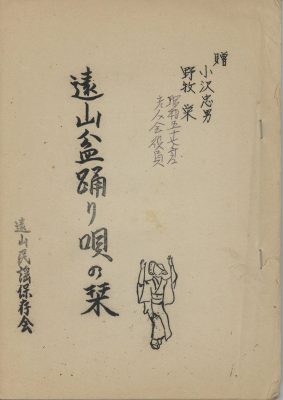 贈
小沢忠男
野牧栄
昭和五十七年度
老人会役員
遠山盆踊り唄の栞
遠山民謡保存会